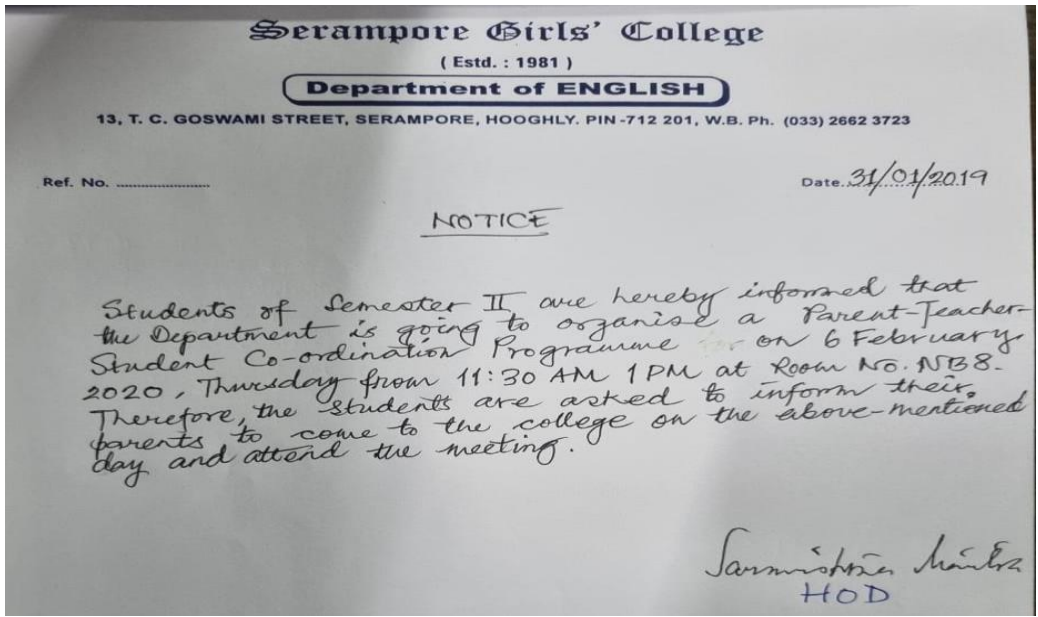 Serampore Girls' College
( Estd. : 1981 )
Department of ENGLISH
13, T. C. GOSWAMI STREET, SERAMPORE, HOOGHLY. PIN-712 201, W.B. Ph. (033) 2662 3723
Ref. No. ........................ Date..31/01/2019
NOTICE
Students of Semester II are hereby informed that
the Department is going to organise a Parent-Teacher-
Student Co-ordination Programme on 6 February
2020, Thursday from 11:30 AM 1 PM at Room No. NB8.
Therefore, the students are asked to inform their
parents to come to the college on the above-mentioned
day and attend the meeting.
Sarmistha Maitra
HOD